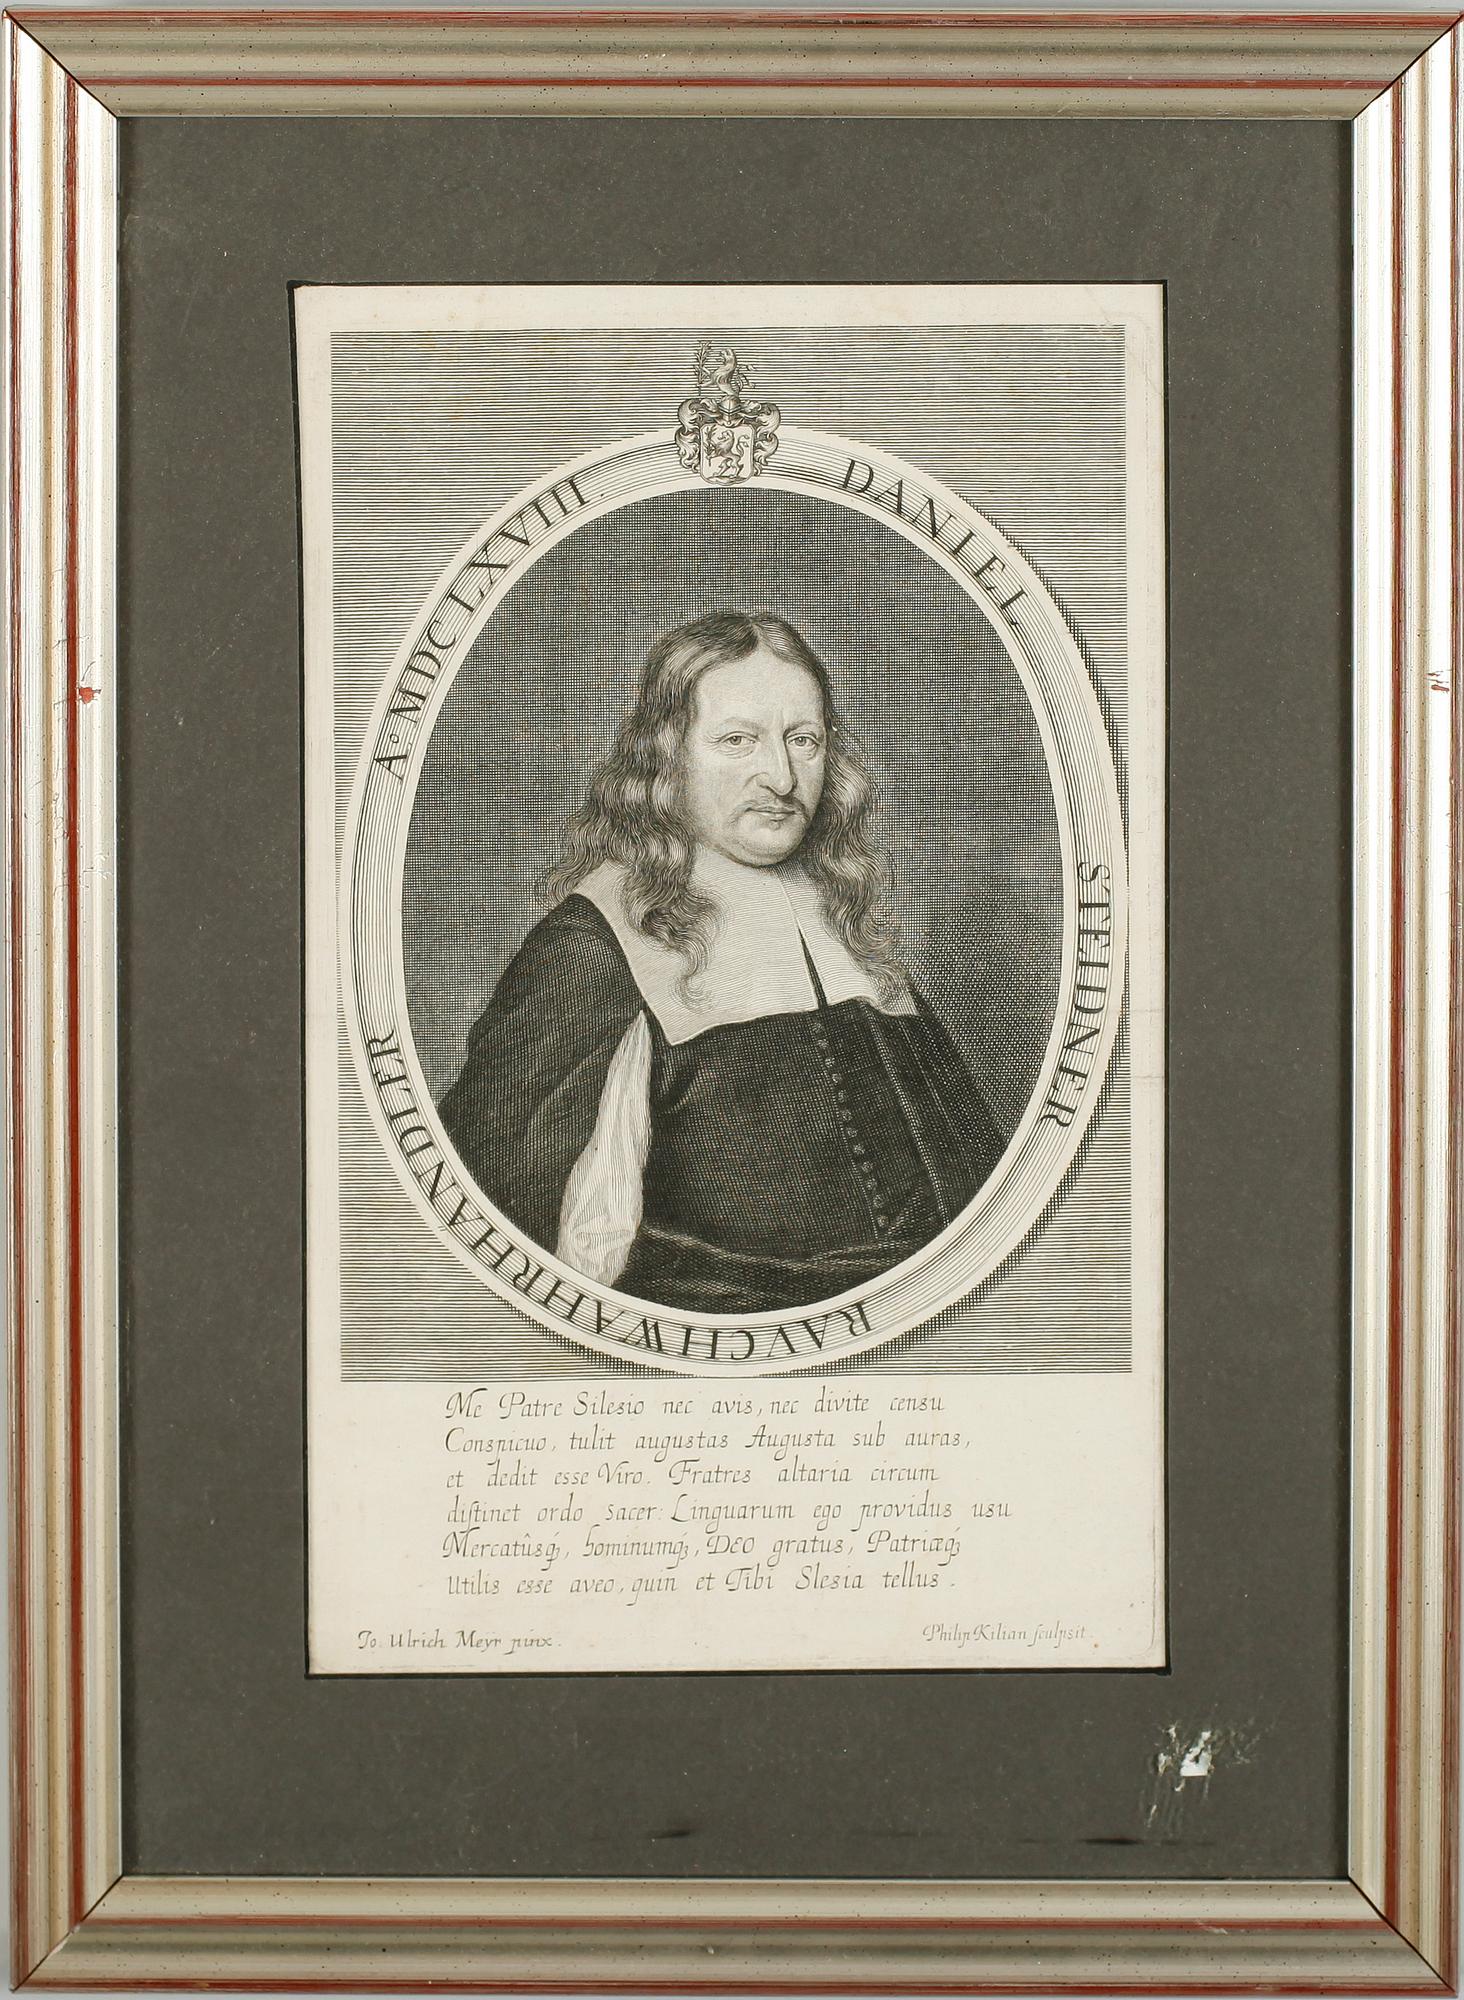 DANIEL STEIDNER RAVCHWAHRHÄNDLER Aº MDCLXVIII.
Me Patre Silesio nec avis, nec divite censu
Conspicuo, tulit augustas Augusta sub auras,
et dedit esse Viro. Fratres altaria circum
diſtinet ordo sacer: Linguarum ego providus usu
Mercatûsqꝫ, hominumqꝫ, DEO gratus, Patriæqꝫ
Utilis esse aveo, quin et Tibi Slesia tellus.
Jo. Ulrich Meÿr pinx.
Philip Kilian ſculpsit.